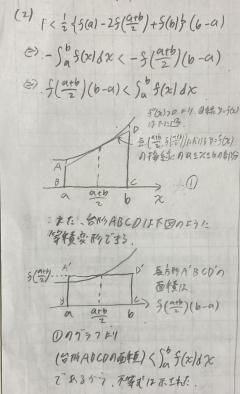 (2)
T < 1/2 {f(a) - 2f((a+b)/2) + f(b)} (b-a)
⇔ -∫_a^b f(x)dx < -f((a+b)/2)(b-a)
⇔ f((a+b)/2)(b-a) < ∫_a^b f(x)dx
f''(x)>0 より 曲線 y=f(x)
は下に凸
点((a+b)/2, f((a+b)/2))における y=f(x)
の接線
A
D
B
C
a
(a+b)/2
b
x
①
また、台形ABCDは下図のように
等積変形できる。
f((a+b)/2)
A'
D'
B
C
a
(a+b)/2
b
長方形A'BCD'の
面積は
f((a+b)/2)(b-a)
①のグラフより
(台形ABCDの面積) < ∫_a^b f(x)dx
であるから、不等式は示された。